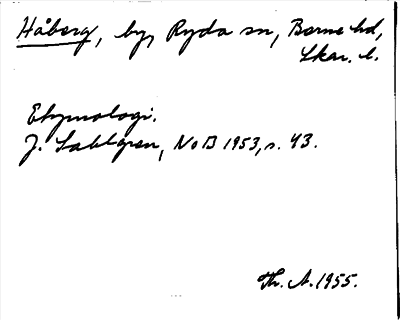 Håberg, by, Ryda sn, Barne hd,
Skar. l.
Etymologi.
J. Sahlgren, NoB 1953, s. 43.
Th. A. 1955.